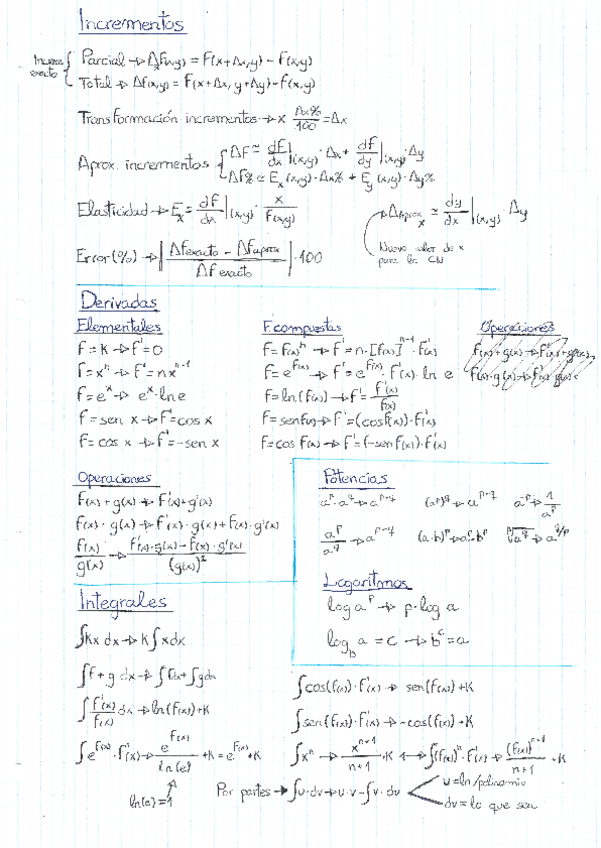 Incrementos
Incremento exacto
Parcial → Δₓf(x,y) = F(x+Δx,y) - F(x,y)
Total → Δf(x,y) = F(x+Δx, y+Δy) - F(x,y)
Transformación incrementos → x · Δx%/100 = Δx
Aprox. incrementos
ΔF ≃ dF/dx |(x,y) · Δx + dF/dy |(x,y) · Δy
ΔF% ≃ Eₓ(x,y) · Δx% + E_y(x,y) · Δy%
Elasticidad → Eₓ = dF/dx |(x,y) · x/F(x,y)
Δaprox x ≃ dy/dx |(x,y) · Δy
Nuevo valor de x
para la CN
Error(%) → |(Δf exacto - Δf aprox)/Δf exacto| · 100
Derivadas
Elementales
F = K → F' = 0
F = xⁿ → F' = nxⁿ⁻¹
F = eˣ → eˣ · ln e
F = sen x → F' = cos x
F = cos x → F' = -sen x
F. compuestas
F = F(x)ⁿ → F' = n · [F(x)]ⁿ⁻¹ · F'(x)
F = e^F(x) → F' = e^F(x) · F'(x) · ln e
F = ln(F(x)) → F' = F'(x)/F(x)
F = sen F(x) → F' = (cos F(x)) · F'(x)
F = cos F(x) → F' = (-sen F(x)) · F'(x)
Operaciones
F(x) + g(x) → F'(x) + g'(x)
Operaciones
F(x) + g(x) → F'(x) + g'(x)
F(x) · g(x) → F'(x) · g(x) + F(x) · g'(x)
F(x)/g(x) → (F'(x) · g(x) - F(x) · g'(x))/(g(x))²
Potencias
(a·b)ᵖ → aᵖ·bᵖ
Logaritmos
log aᵖ → p · log a
log_b a = c → bᶜ = a
Integrales
∫Kx dx → K∫x dx
∫F + g dx → ∫F dx + ∫g dx
∫F'(x)/F(x) dx → ln(F(x)) + K
∫e^F(x) · F'(x) → e^F(x)/ln(e) + K = e^F(x) + K
ln(e) = 1
∫cos(F(x)) · F'(x) → sen(F(x)) + K
∫sen(F(x)) · F'(x) → -cos(F(x)) + K
∫xⁿ → xⁿ⁺¹/(n+1) + K ↔ ∫(F(x))ⁿ · F'(x) → (F(x))ⁿ⁺¹/(n+1) + K
Por partes → ∫u·dv → u·v - ∫v·du
u = ln/polinomio
dv = lo que sea